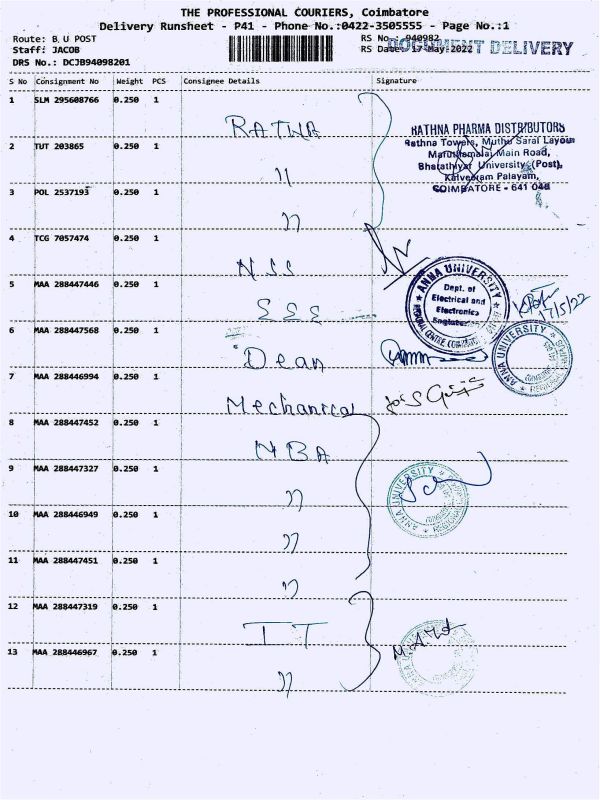 THE PROFESSIONAL COURIERS, Coimbatore
Delivery Runsheet - P41 - Phone No.:0422-3505555 - Page No.:1
Route: B U POST
RS No.: 940982
Staff: JACOB
RS Date: 17-May-2022
DOCUMENT DELIVERY
DRS No.: DCJB94098201
S No Consignment No Weight PCS Consignee Details Signature
1 SLM 295608766 0.250 1 RATNA
RATHNA PHARMA DISTRIBUTORS
Rathna Towers, Muthu Sarai Layout
Maruthamalai Main Road,
Bharathiyar University (Post),
Kalveeram Palayam,
COIMBATORE - 641 046
2 TUT 203865 0.250 1 "
3 POL 2537193 0.250 1 "
4 TCG 7057474 0.250 1 NSS
5 MAA 288447446 0.250 1 EEE
ANNA UNIVERSITY
Dept. of
Electrical and
Electronics
Engineering
17/5/22
6 MAA 288447568 0.250 1 Dean
ANNA UNIVERSITY
7 MAA 288446994 0.250 1 Mechanical
8 MAA 288447452 0.250 1 MBA
9 MAA 288447327 0.250 1 "
ANNA UNIVERSITY
10 MAA 288446949 0.250 1 "
11 MAA 288447451 0.250 1 "
12 MAA 288447319 0.250 1 IT
13 MAA 288446967 0.250 1 "